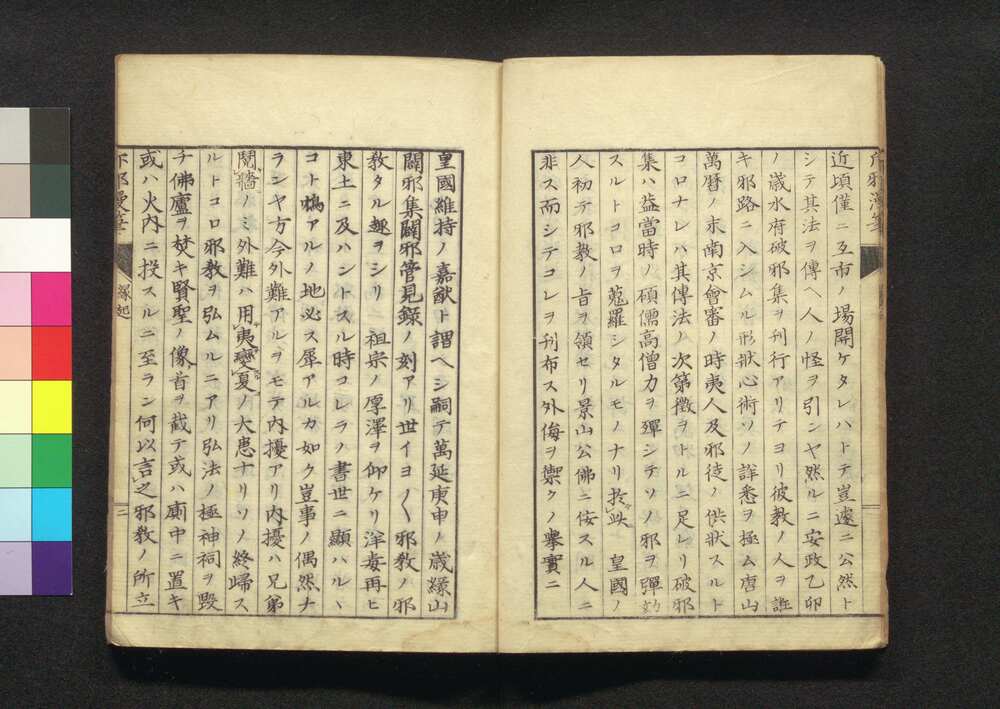 近頃僅ニ互市ノ場開ケタレハトテ豈遽ニ公然ト
シテ其法ヲ傳ヘ人ノ怪ヲ引ンヤ然ルニ安政乙卯
ノ歳水府破邪集ヲ刊行アリテヨリ彼教ノ人ヲ誑
キ邪路ニ入シムル形狀心術ソノ詳悉ヲ極ム唐山
萬曆ノ末南京會審ノ時夷人及邪徒ノ供狀スルト
コロナレハ其傳法ノ次第徴ヲトルニ足レリ破邪
集ハ益當時ノ碩儒高僧力ヲ殫シテソノ邪ヲ彈劾
スルトコロヲ蒐羅シタルモノナリ於此 皇國ノ
人初テ邪教ノ旨ヲ領セリ景山公佛ニ侫スル人ニ
非ス而シテコレヲ刊布ス外侮ヲ禦クノ擧實ニ
皇國維持ノ嘉猷ト謂ヘシ嗣テ萬延庚申ノ歳緣山
闢邪集闢邪管見錄ノ刻アリ世イヨ〱邪教ノ邪
教タル趣ヲシリ 祖宗ノ厚澤ヲ仰ケリ渾毒再ヒ
東土ニ及ハントスル時コレラノ書世ニ顯ハルヽ
コト鴆アルノ地必ス犀アルカ如ク豈事ノ偶然ナ
ランヤ方今外難アルヲモテ内擾アリ内擾ハ兄弟
鬩牆ノミ外難ハ用夷變夏ノ大患ナリソノ終歸ス
ルトコロ邪教ヲ弘ムルニアリ弘法ノ極神祠ヲ毀
チ佛廬ヲ焚キ賢聖ノ像首ヲ截テ或ハ廁中ニ置キ
或ハ火内ニ投スルニ至ラン何以言之邪教ノ所立
緣起
二